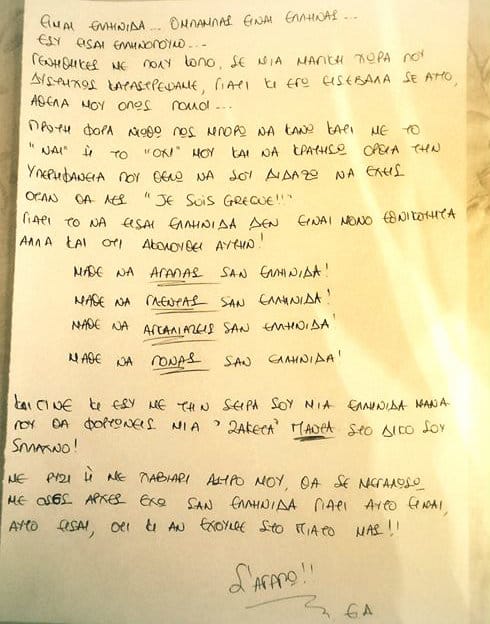 ΕΙΜΑΙ ΕΛΛΗΝΙΔΑ... Ο ΜΠΑΜΠΑΣ ΕΙΝΑΙ ΕΛΛΗΝΑΣ...
ΕΣΥ ΕΙΣΑΙ ΕΛΛΗΝΟΠΟΥΛΟ...
ΓΕΝΝΗΘΗΚΕΣ ΜΕ ΠΟΛΥ ΚΟΠΟ, ΣΕ ΜΙΑ ΜΑΓΙΚΗ ΧΩΡΑ ΠΟΥ
ΔΥΣΤΥΧΩΣ ΚΑΤΑΣΤΡΕΨΑΜΕ, ΓΙΑΤΙ ΚΙ ΕΓΩ ΕΙΣΕΒΑΛΑ ΣΕ ΑΥΤΟ,
ΑΘΕΛΑ ΜΟΥ ΟΠΩΣ ΠΟΛΛΟΙ...
ΠΡΩΤΗ ΦΟΡΑ ΝΙΩΘΩ ΠΩΣ ΜΠΟΡΩ ΝΑ ΚΑΝΩ ΚΑΤΙ ΜΕ ΤΟ
"ΝΑΙ" Ή ΤΟ "ΟΧΙ" ΜΟΥ ΚΑΙ ΝΑ ΚΡΑΤΗΣΩ ΟΡΘΙΑ ΤΗΝ
ΥΠΕΡΗΦΑΝΕΙΑ ΠΟΥ ΘΕΛΩ ΝΑ ΣΟΥ ΔΙΔΑΞΩ ΝΑ ΕΧΕΙΣ
ΟΤΑΝ ΘΑ ΛΕΣ "JE SUIS GREQUE!!"
ΓΙΑΤΙ ΤΟ ΝΑ ΕΙΣΑΙ ΕΛΛΗΝΙΔΑ ΔΕΝ ΕΙΝΑΙ ΜΟΝΟ ΕΘΝΙΚΟΤΗΤΑ
ΑΛΛΑ ΚΑΙ ΟΤΙ ΑΚΟΛΟΥΘΕΙ ΑΥΤΗΝ!
ΜΑΘΕ ΝΑ ΑΓΑΠΑΣ ΣΑΝ ΕΛΛΗΝΙΔΑ!
ΜΑΘΕ ΝΑ ΓΛΕΝΤΑΣ ΣΑΝ ΕΛΛΗΝΙΔΑ!
ΜΑΘΕ ΝΑ ΑΓΚΑΛΙΑΖΕΙΣ ΣΑΝ ΕΛΛΗΝΙΔΑ!
ΜΑΘΕ ΝΑ ΠΟΝΑΣ ΣΑΝ ΕΛΛΗΝΙΔΑ!
ΚΑΙ ΓΙΝΕ ΚΙ ΕΣΥ ΜΕ ΤΗΝ ΣΕΙΡΑ ΣΟΥ ΜΙΑ ΕΛΛΗΝΙΔΑ ΜΑΝΑ
ΠΟΥ ΘΑ ΦΟΡΤΩΝΕΙΣ ΜΙΑ "ΖΑΚΕΤΑ" ΠΑΝΤΑ ΣΤΟ ΔΙΚΟ ΣΟΥ
ΣΠΛΑΧΝΟ!
ΜΕ ΡΥΖΙ Ή ΜΕ ΧΑΒΙΑΡΙ ΑΣΤΡΟ ΜΟΥ, ΘΑ ΣΕ ΜΕΓΑΛΩΣΩ
ΜΕ ΟΣΕΣ ΑΡΧΕΣ ΕΧΩ ΣΑΝ ΕΛΛΗΝΙΔΑ ΓΙΑΤΙ ΑΥΤΟ ΕΙΜΑΙ,
ΑΥΤΟ ΕΙΣΑΙ, ΟΤΙ ΚΙ ΑΝ ΕΧΟΥΜΕ ΣΤΟ ΠΙΑΤΟ ΜΑΣ!!
Σ'ΑΓΑΠΩ!!